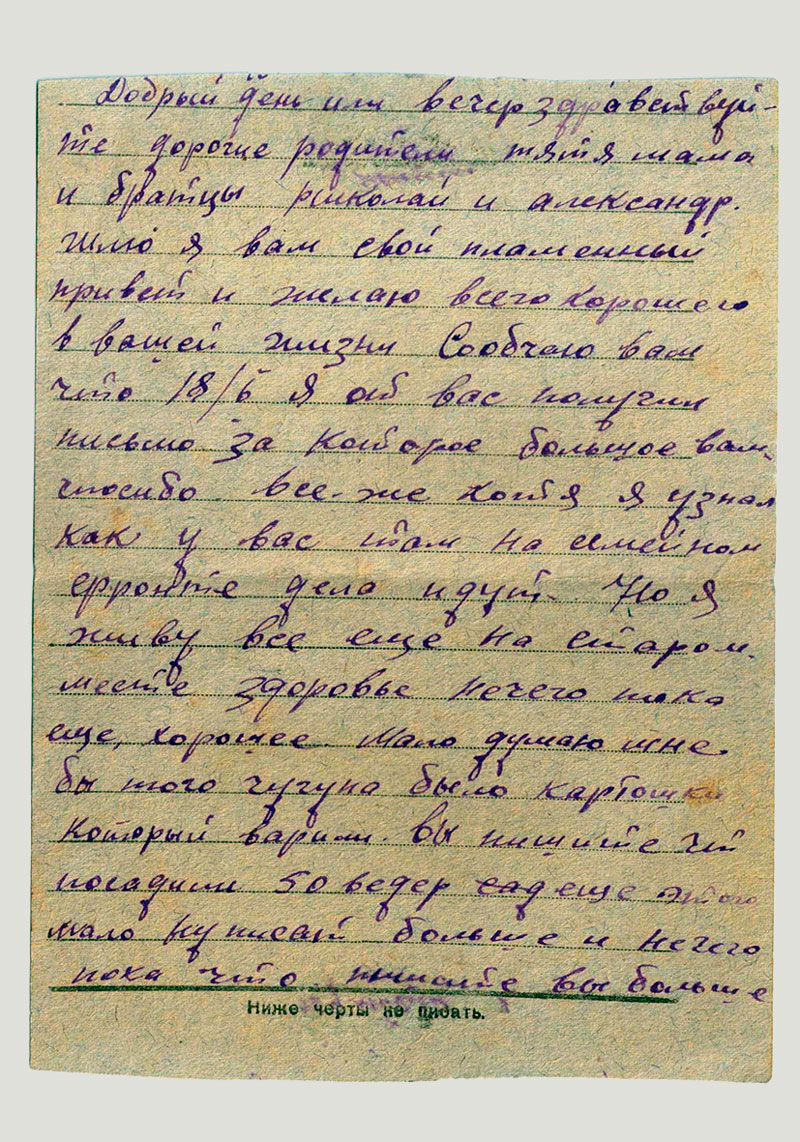 Добрый день или вечер здравствуй-
те дорогие родители тятя мама
и братцы николай и александр.
шлю я вам свой пламенный
привет и желаю всего хорошего
в вашей жизни Сообчаю вам
что 18/6 я от вас получил
письмо за которое большое вам
спосибо. все-же хотя я узнал
как у вас там на семейном
фронте дела идут. Но я
живу все еще на старом.
месте здоровье нечего пока
еще, хорошее. Мало думаю мне
бы того чугуна было картошки
который варили. вы пишите чт
посадили 50 ведер еще этого
мало Ну писат больше и нечего
пока что пишите вы больше
Ниже черты не писать.